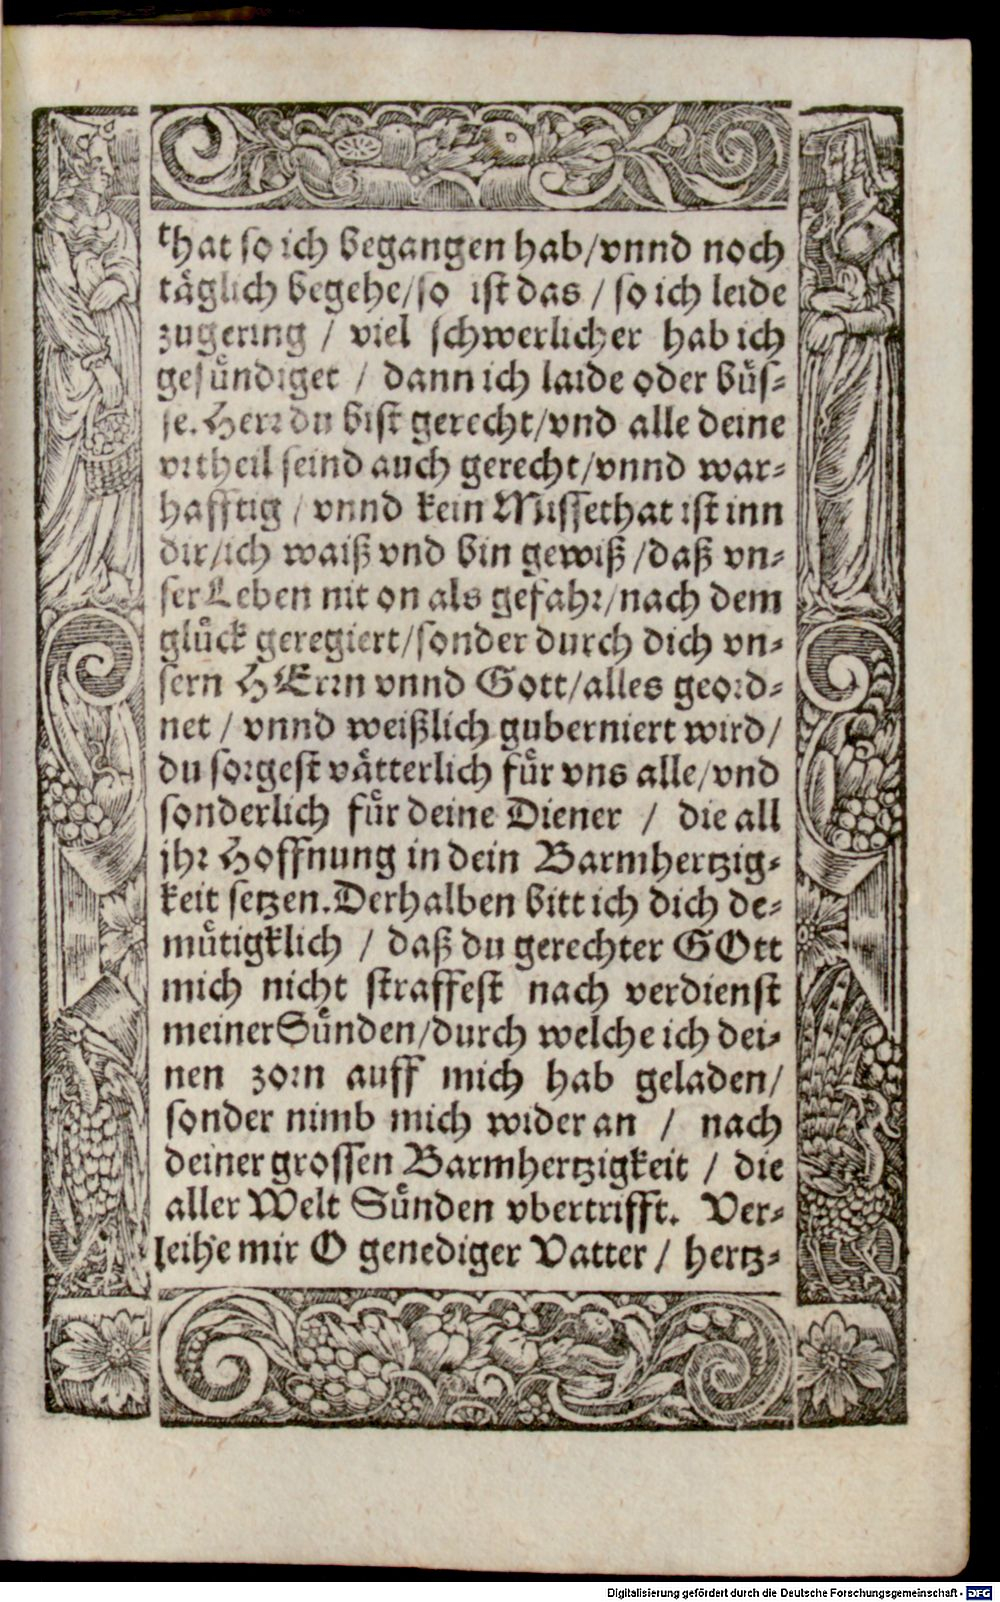 that so ich begangen hab/vnnd noch
täglich begehe/so ist das / so ich leide
zugering / viel schwerlicher hab ich
gesündiget / dann ich laide oder büs-
se. Herr du bist gerecht/vnd alle deine
vrtheil seind auch gerecht/vnnd war-
hafftig / vnnd kein Missethat ist inn
dir/ich waiß vnd bin gewiß/daß vn-
ser Leben nit on als gefahr/nach dem
glück geregiert/sonder durch dich vn-
sern HErrn vnnd Gott/alles geord-
net / vnnd weißlich guberniert wird/
du sorgest vätterlich für vns alle/vnd
sonderlich für deine Diener / die all
jhr Hoffnung in dein Barmhertzig-
keit setzen. Derhalben bitt ich dich de-
mütigklich / daß du gerechter GOtt
mich nicht straffest nach verdienst
meiner Sünden/durch welche ich dei-
nen zorn auff mich hab geladen/
sonder nimb mich wider an / nach
deiner grossen Barmhertzigkeit / die
aller Welt Sünden vbertrifft. Ver-
leihe mir O genediger Vatter / hertz-
Digitalisierung gefördert durch die Deutsche Forschungsgemeinschaft - DFG